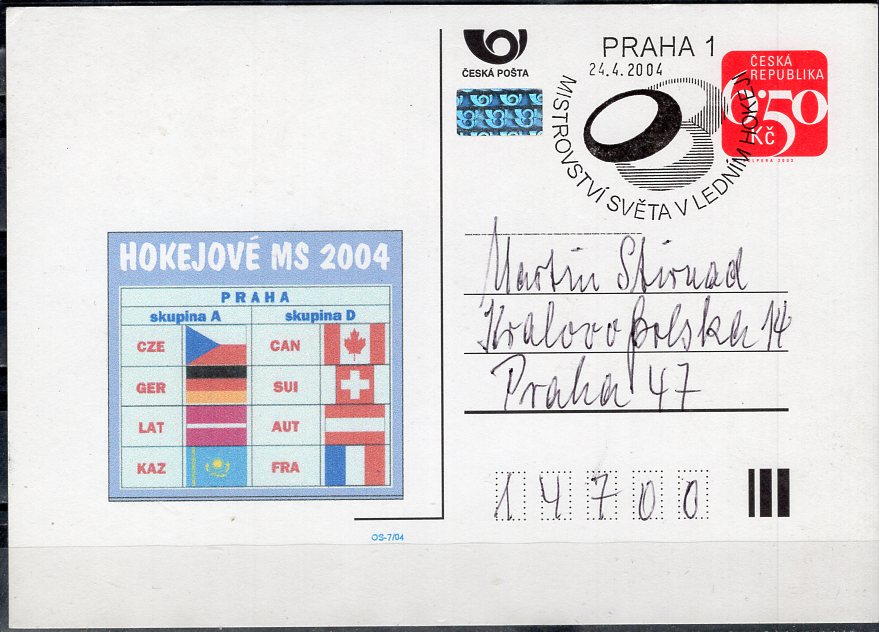 ČESKÁ POŠTA
PRAHA 1
24.4.2004
MISTROVSTVÍ SVĚTA V LEDNÍM HOKEJI
ČESKÁ
REPUBLIKA
6·50
Kč
2003
HOKEJOVÉ MS 2004
PRAHA
skupina A skupina D
CZE CAN
GER SUI
LAT AUT
KAZ FRA
OS-7/04
Martin Stirnad
Kralovopolska 14
Praha 47
14700